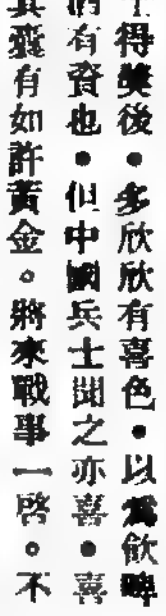 得獎後。多欣欣有喜色。以爲飲啤
有資也。但中國兵士聞之亦喜。喜
其囊有如許黃金。將來戰事一啓。不